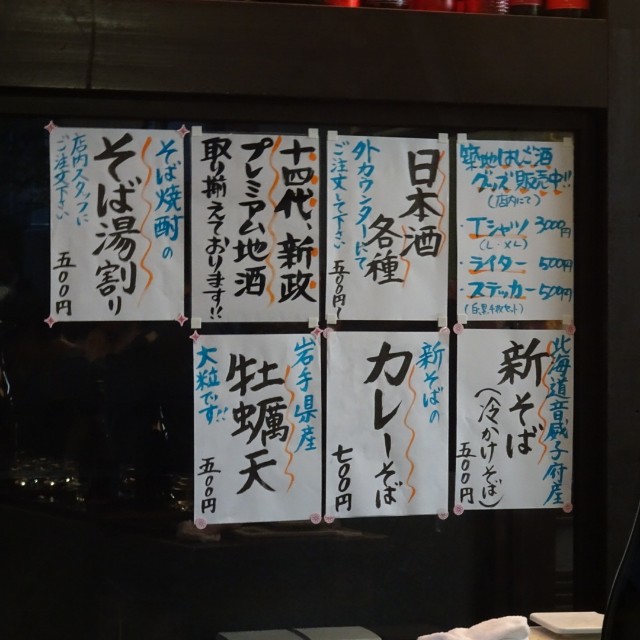 築地はしご酒
グッズ販売中!!
(店内にて)
・Tシャツ 3000円
(L・XL)
・ライター 500円
・ステッカー 500円
日本酒
各種
外カウンターにて
ご注文して下さい
五〇〇円~
十四代、新政
プレミアム地酒
取り揃えております!!
そば焼酎の
そば湯割り
店内スタッフに
ご注文下さい
五〇〇円
北海道音威子府産
新そば
(冷かけそば)
五〇〇円
新そばの
カレーそば
七〇〇円
岩手県産
牡蠣天
大粒です!!
五〇〇円